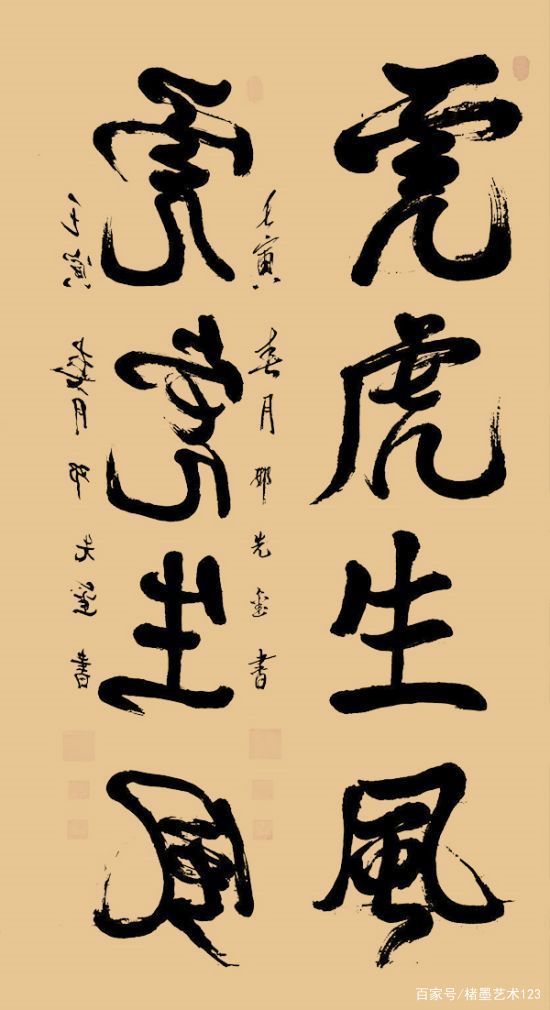 虎虎生風
壬寅春月 先 書
虎虎生風
壬寅春月 先 書
百家号/楮墨艺术123